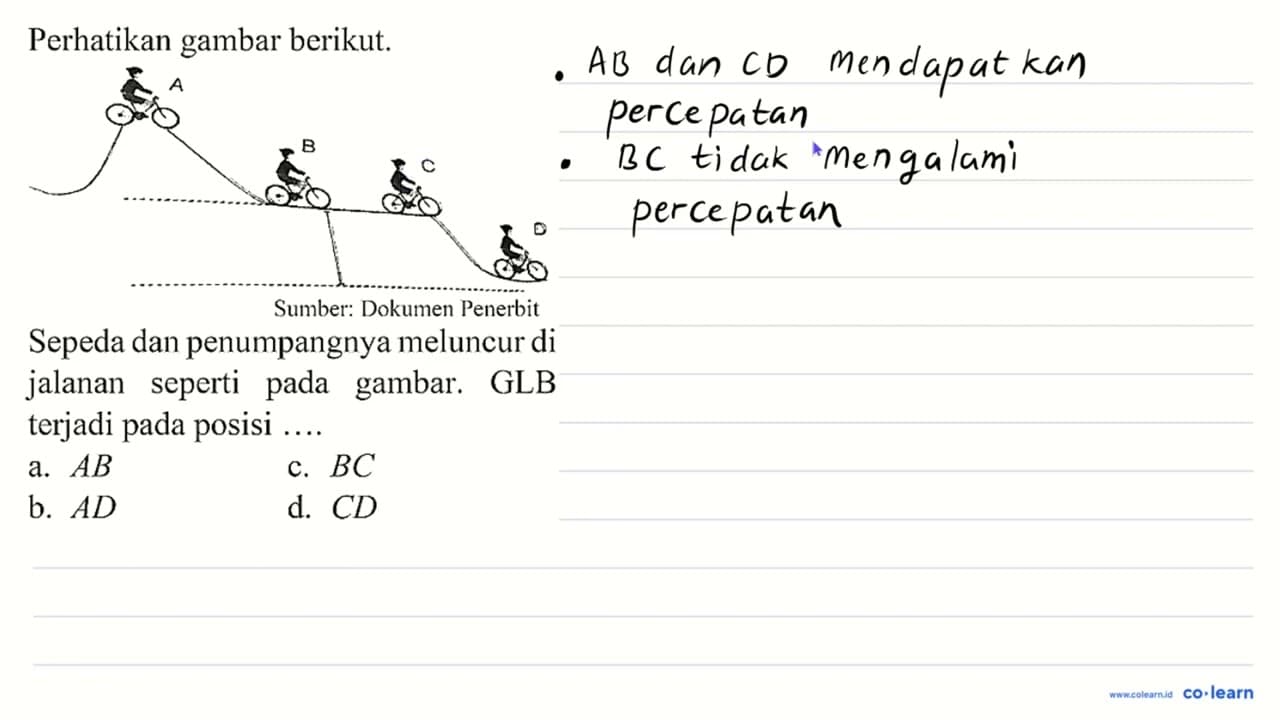 Perhatikan gambar berikut.
A
B
C
D
Sumber: Dokumen Penerbit
Sepeda dan penumpangnya meluncur di
jalanan seperti pada gambar. GLB
terjadi pada posisi ....
a. AB
c. BC
b. AD
d. CD
• AB dan CD mendapatkan
percepatan
• BC tidak mengalami
percepatan
www.colearn.id co·learn